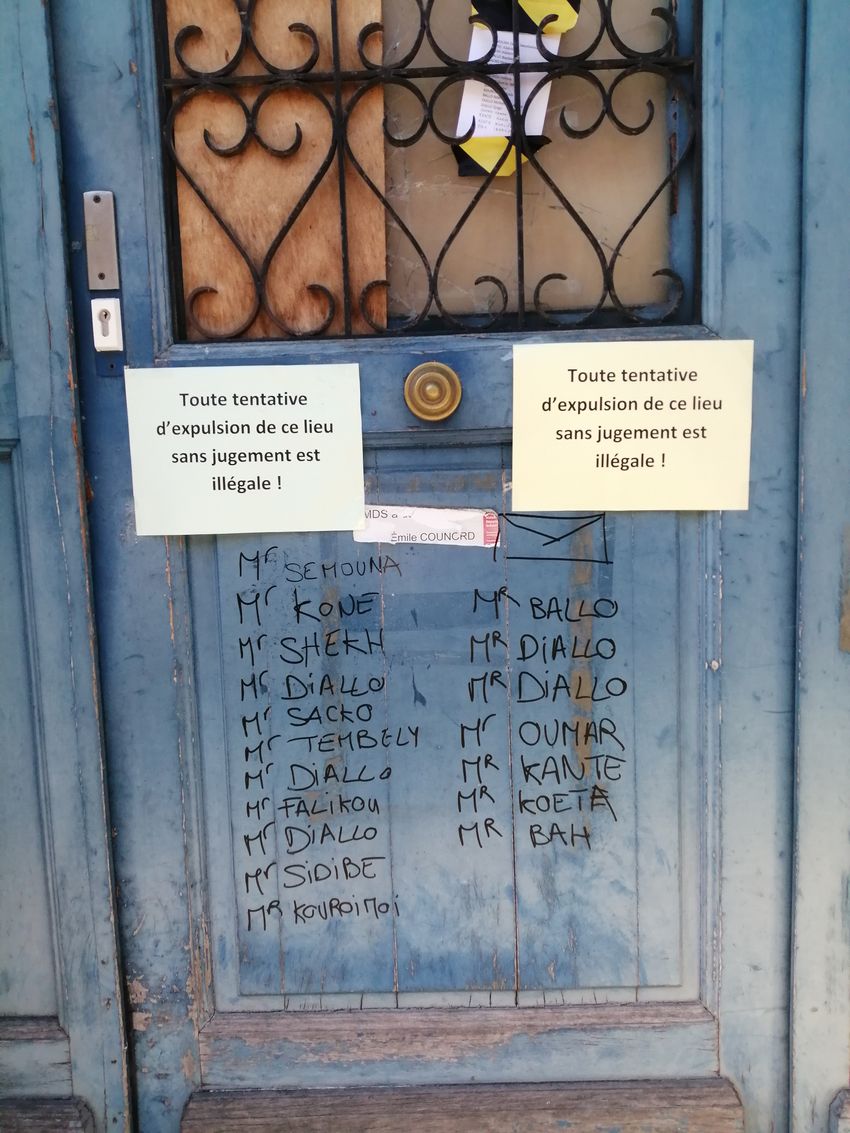 Toute tentative
d'expulsion de ce lieu
sans jugement est
illégale !
Toute tentative
d'expulsion de ce lieu
sans jugement est
illégale !
MDS
Émile COUNORD
Mr SEMOUNA
Mr KONE
Mr SHEKH
Mr DiALLO
Mr SACKO
Mr TEMBELY
Mr DiALLO
Mr FALIKOU
Mr DiALLO
Mr SiDiBE
MR KOUROiMOi
MR BALLO
MR DiALLO
MR DiALLO
Mr OUMAR
MR KANTE
MR KOETA
MR BAH